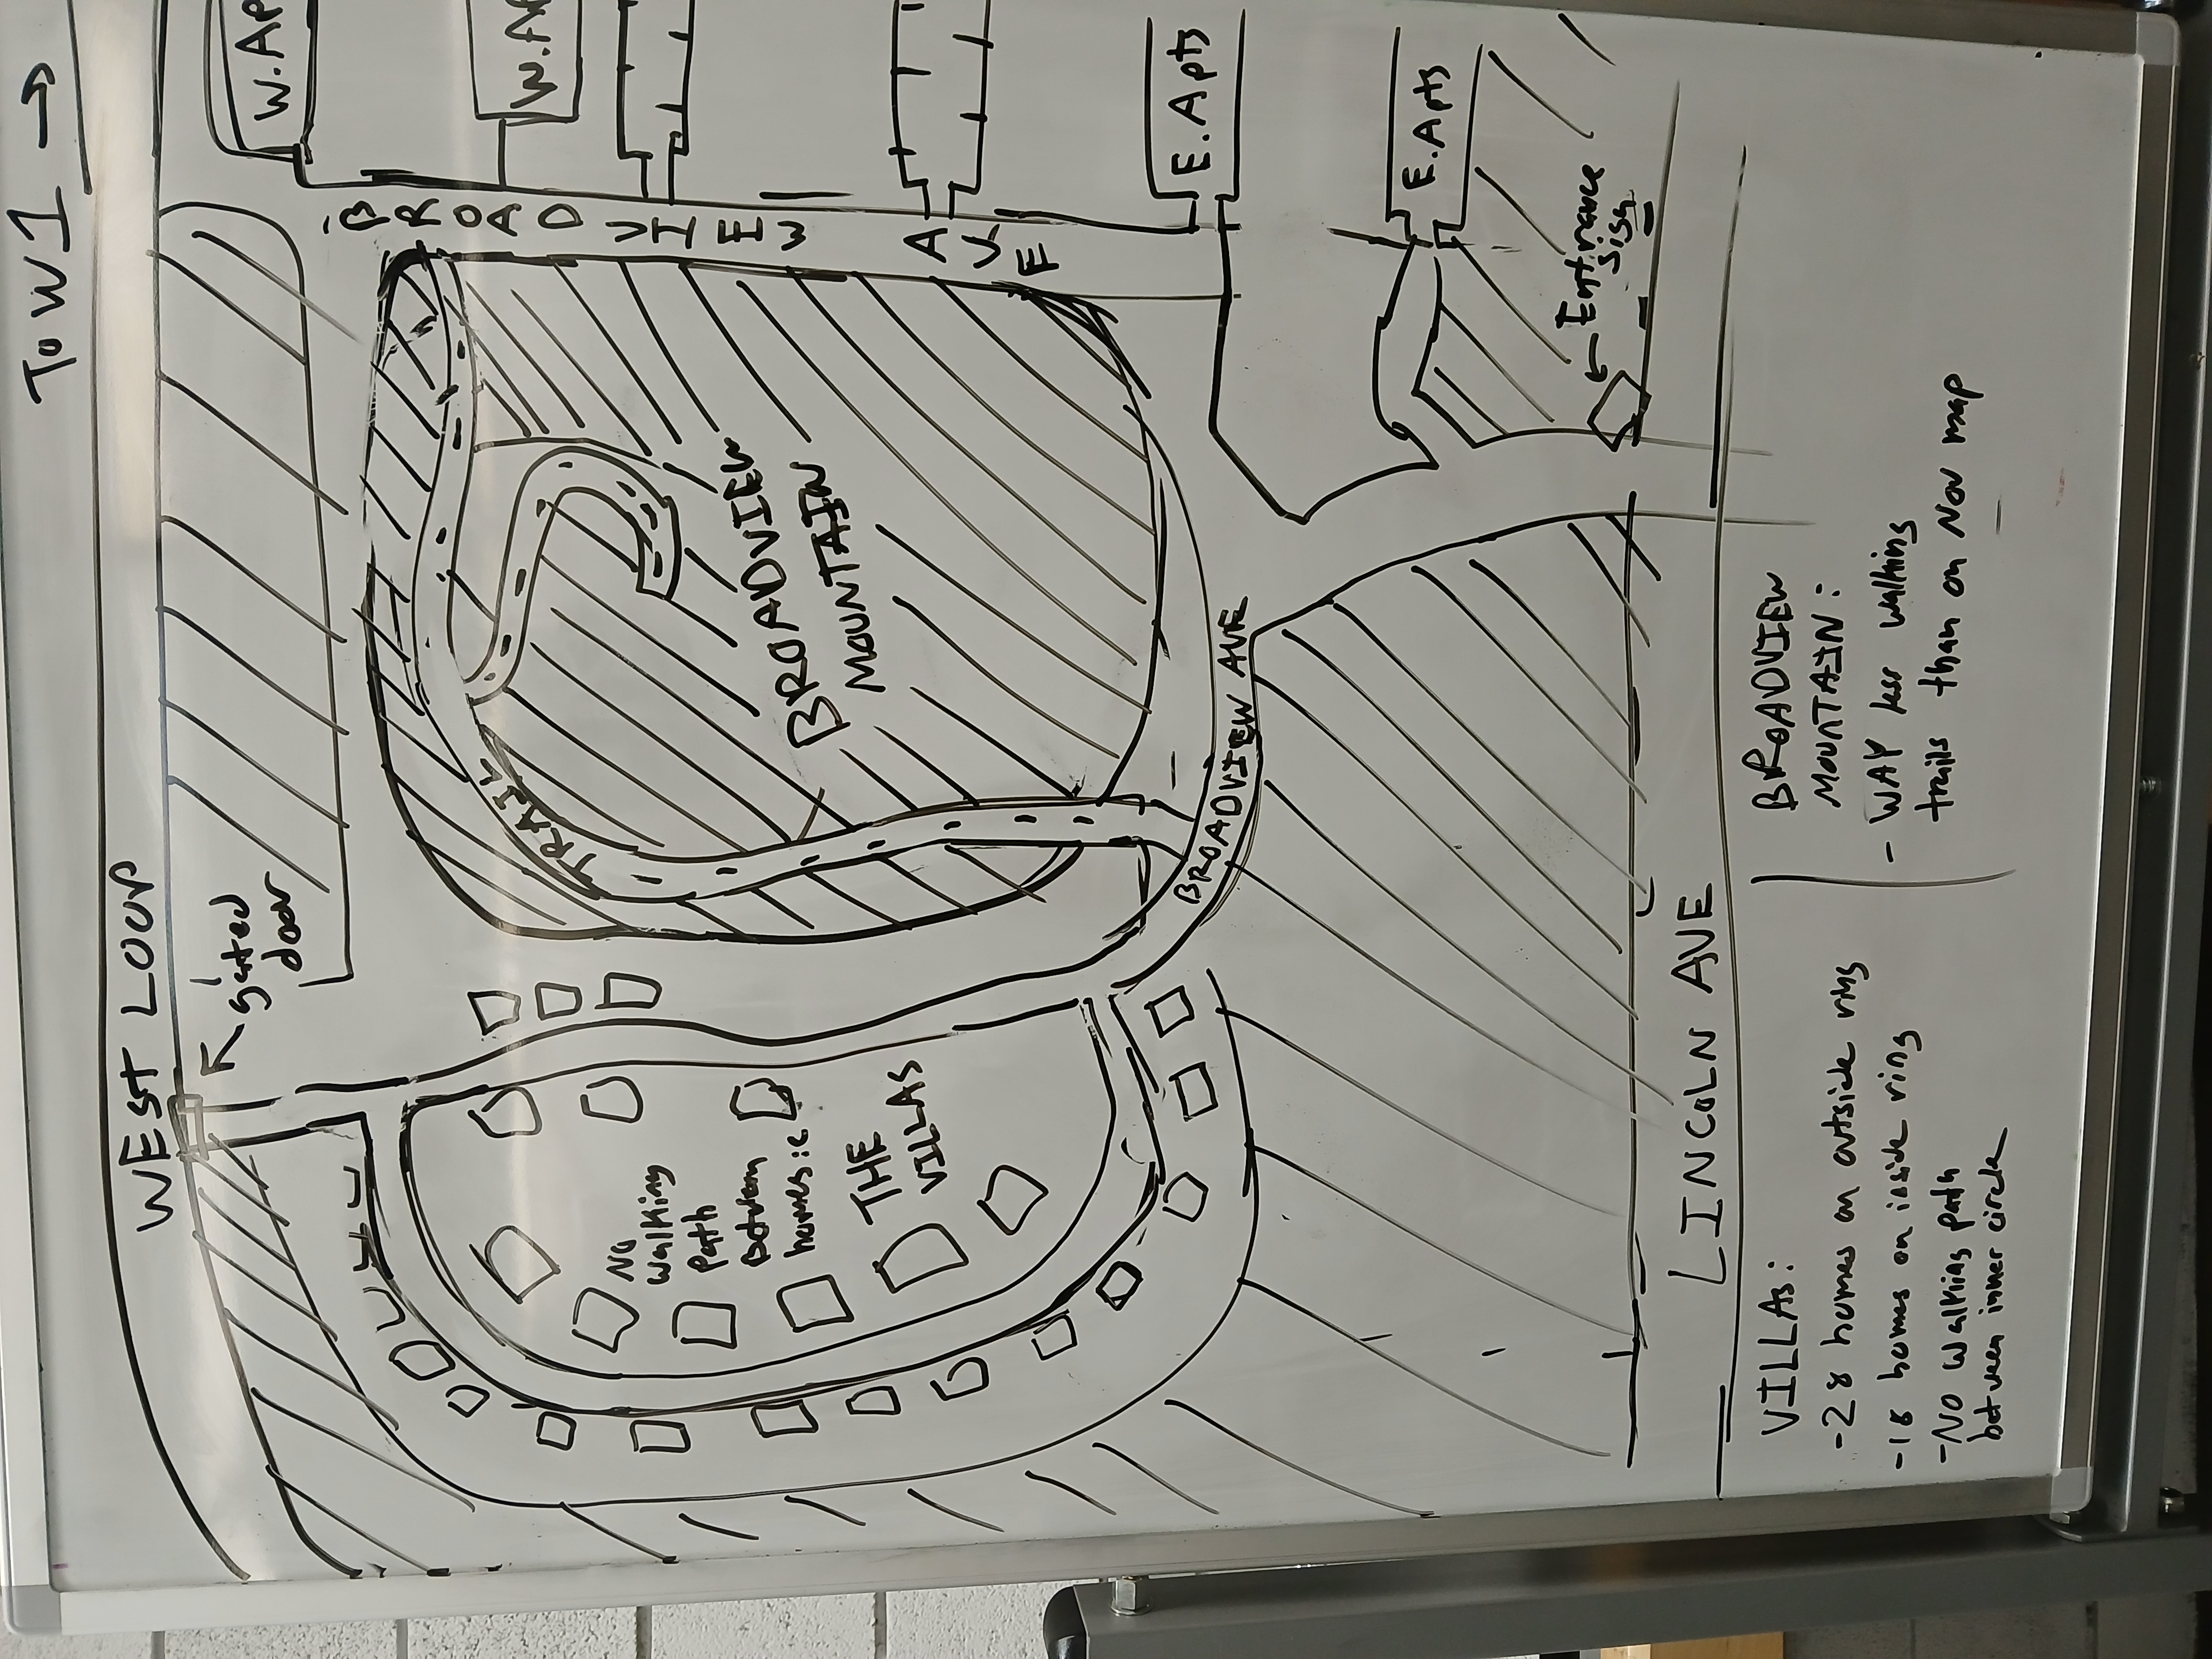 To W1 →
WEST LOOP
gated
door
W.Ap
W.A
BROADVIEW AVE
E. Apts
E. Apts
TRAIL
BROADVIEW
MOUNTAIN
NO
walking
path
between
homes
THE
VILLAS
BROADVIEW AVE
← Entrance
sign
LINCOLN AVE
VILLAS:
-28 homes on outside ring
-18 homes on inside ring
-NO walking path
between inner circle
BROADVIEW
MOUNTAIN:
- WAY less walking
trails than on Nov map